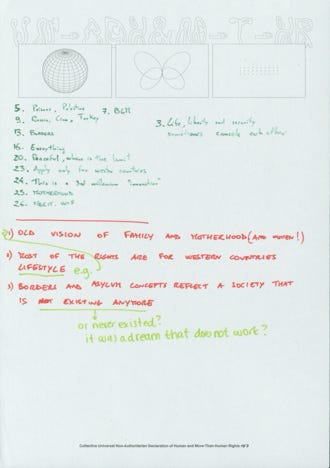 5. Prisons, Palestine
7. BLM
9. Russia, China, Turkey
3. Life, liberty and security
sometimes cancele each other
13. Borders
16. Everything
20. Peaceful, where is the limit
23. Apply only for western countries
24. This is a 3rd millennium "innovation"
25. MOTHERHOOD
26. MERIT.
1) OLD VISION OF FAMILY AND MOTHERHOOD (AND WOMEN!)
2) MOST OF THE RIGHTS ARE FOR WESTERN COUNTRIES
LIFESTYLE e.g.
3) BORDERS AND ASYLUM CONCEPTS REFLECT A SOCIETY THAT
IS NOT EXISTING ANYMORE
or never existed?
it was a dream that does not work?
Collective Universal Non-Authoritarian Declaration of Human and More-Than-Human Rights